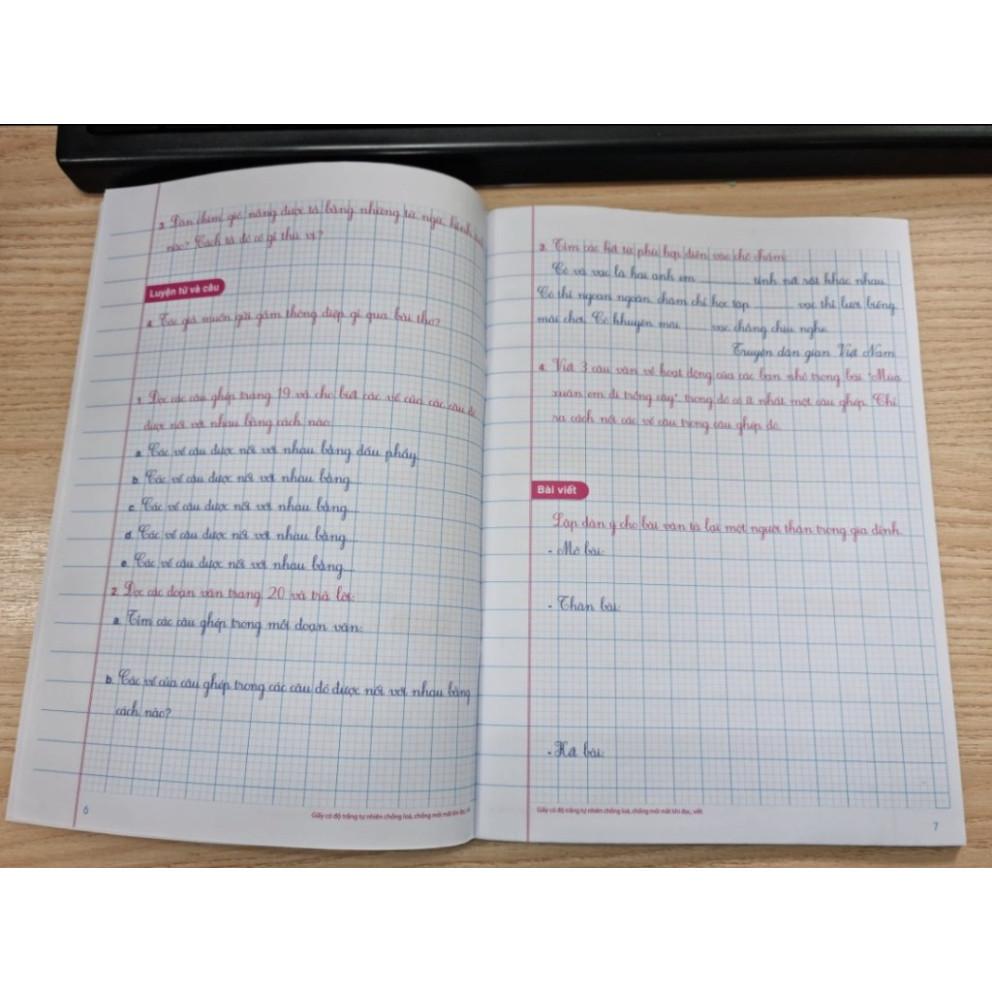 3. Đàn chim, gió, nắng được tả bằng những từ ngữ, hình ảnh
nào? Cách tả đó có gì thú vị?
Luyện từ và câu
4. Tác giả muốn gửi gắm thông điệp gì qua bài thơ?
1. Đọc các câu ghép trang 19 và cho biết các vế của các câu đó
được nối với nhau bằng cách nào:
a. Các vế câu được nối với nhau bằng dấu phẩy.
b. Các vế câu được nối với nhau bằng
c. Các vế câu được nối với nhau bằng
d. Các vế câu được nối với nhau bằng
e. Các vế câu được nối với nhau bằng
2. Đọc các đoạn văn trang 20 và trả lời:
a. Tìm các câu ghép trong mỗi đoạn văn:
b. Các vế của câu ghép trong các câu đó được nối với nhau bằng
cách nào?
6
Giấy có độ trắng tự nhiên chống loá, chống mỏi mắt khi đọc, viết
3. Tìm các kết từ phù hợp điền vào chỗ chấm:
Cò và vạc là hai anh em ........ tính nết rất khác nhau.
Cò thì ngoan ngoãn, chăm chỉ học tập ........ vạc thì lười biếng,
mải chơi. Cò khuyên mãi ........ vạc chẳng chịu nghe.
Truyện dân gian Việt Nam
4. Viết 3 câu văn về hoạt động của các bạn nhỏ trong bài "Mùa
xuân em đi trồng cây" trong đó có ít nhất một câu ghép. Chỉ
ra cách nối các vế câu trong câu ghép đó.
Bài viết
Lập dàn ý cho bài văn tả lại một người thân trong gia đình.
- Mở bài:
- Thân bài:
- Kết bài:
Giấy có độ trắng tự nhiên chống loá, chống mỏi mắt khi đọc, viết
7